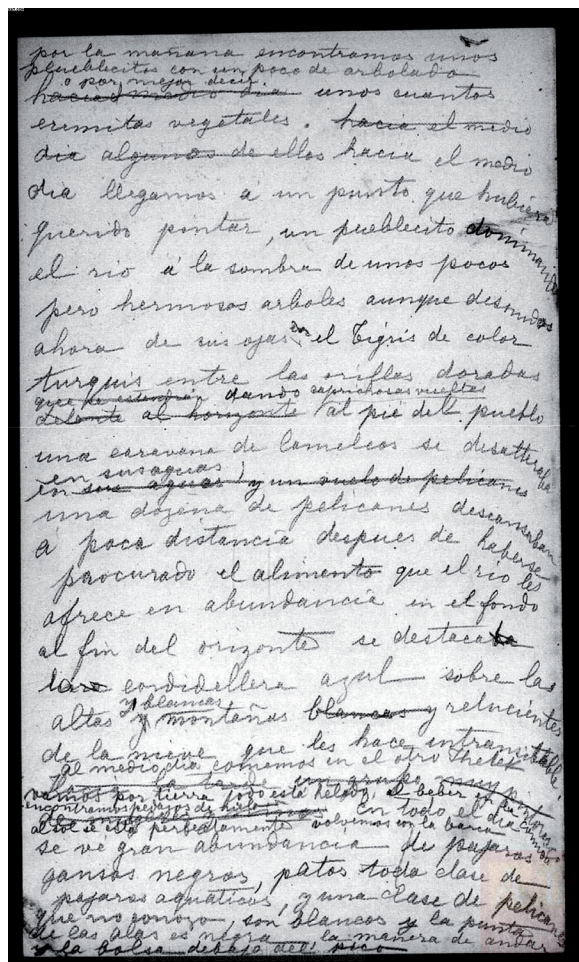 por la mañana encontramos unos
plueblecitos con un poco de arbolado
o por mejor decir,
hacia el medio dia unos cuantos
eremitas vegetales. hacia el medio
dia algunos de ellos hacia el medio
dia llegamos á un punto que hubiera
querido pintar, un pueblecito dominando
el rio á la sombra de unos pocos
pero hermosos arboles aunque desnudos
ahora de sus ojas, el Tigris de color
turquis entre las orillas doradas
que se estendian dando caprichosas vueltas
delante al horizonte al pie del pueblo
una caravana de camelleos se desalteraba
en sus aguas
en sus aguas y un vuelo de pelicanes
una dozena de pelicanes descansaban
á poca distancia despues de haberse
procurado el alimento que el rio les
ofrece en abundancia en el fondo
al fin del orizonte se destacaba
la cordidellera azul sobre las
y blancas
altas y montañas blancas y relucientes
de la nieve que les hace intransitable,
al medio dia comemos en el otro
la tarde un grupo muy
vamos por tierra todo está helado, al beber
encontramos pedazos de hielo En todo el dia
al sol se está perfectamente volvemos con la barca
se ve gran abundancia de pajaros
gansos negros, patos toda clase de
pajaros aquaticos, y una clase de pelicanes
que no conozo, son blancos y la punta
de las alas es negra la manera de andar
y la bolsa debajo del pico